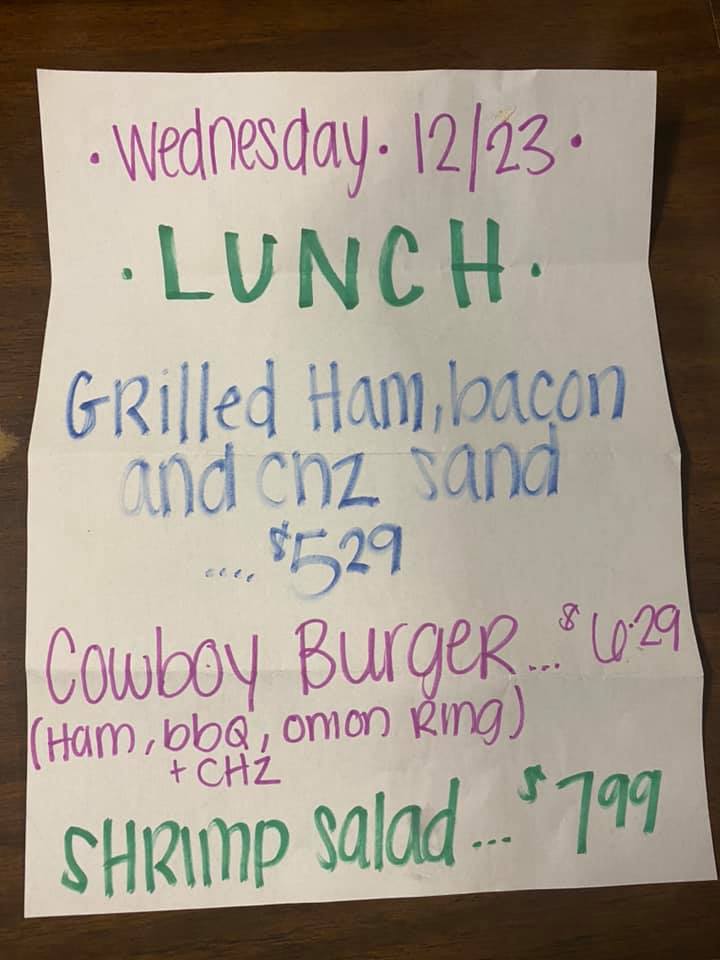 · Wednesday · 12/23 ·
· LUNCH ·
Grilled Ham, bacon
and chz sand
.... $529
Cowboy Burger... $6.29
(Ham, bbQ, onion Ring)
+ CHZ
SHRIMP Salad... $799